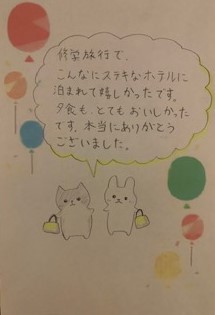 修学旅行で、
こんなにステキなホテルに
泊まれて嬉しかったです。
夕食も、とてもおいしかった
です。本当にありがとう
ございました。